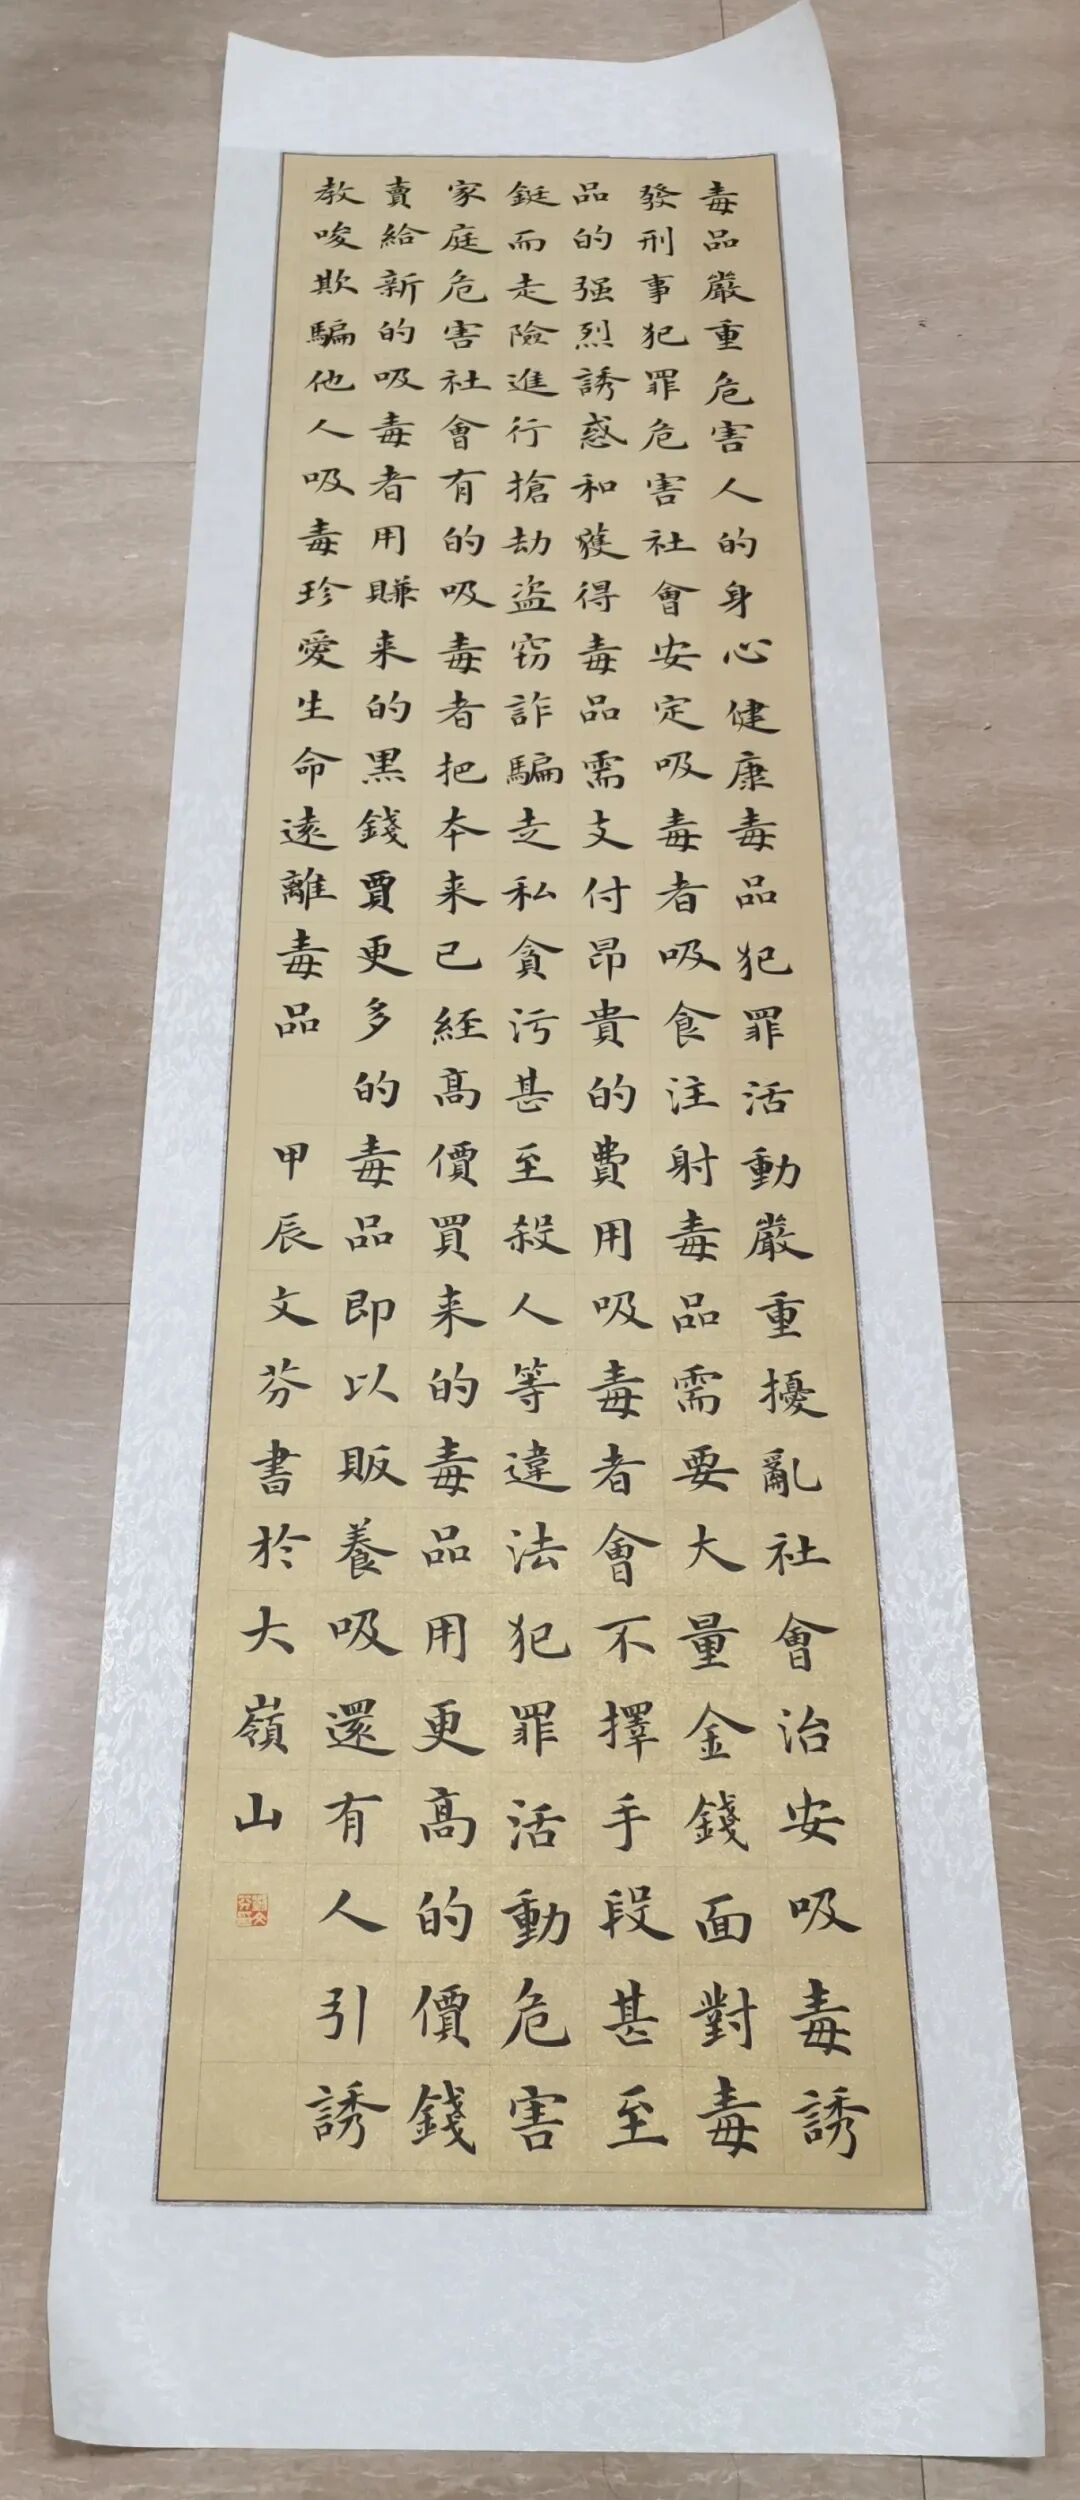 毒品嚴重危害人的身心健康毒品犯罪活動嚴重擾亂社會治安吸毒誘
發刑事犯罪危害社會安定吸毒者吸食注射毒品需要大量金錢面對毒
品的强烈誘惑和獲得毒品需支付昂貴的費用吸毒者會不擇手段甚至
鋌而走險進行搶劫盜窃詐騙走私貪污甚至殺人等違法犯罪活動危害
家庭危害社會有的吸毒者把本来已經高價買来的毒品用更高的價錢
賣給新的吸毒者用賺来的黑錢賈更多的毒品即以販養吸還有人引誘
教唆欺騙他人吸毒珍愛生命遠離毒品 甲辰文芬書於大嶺山